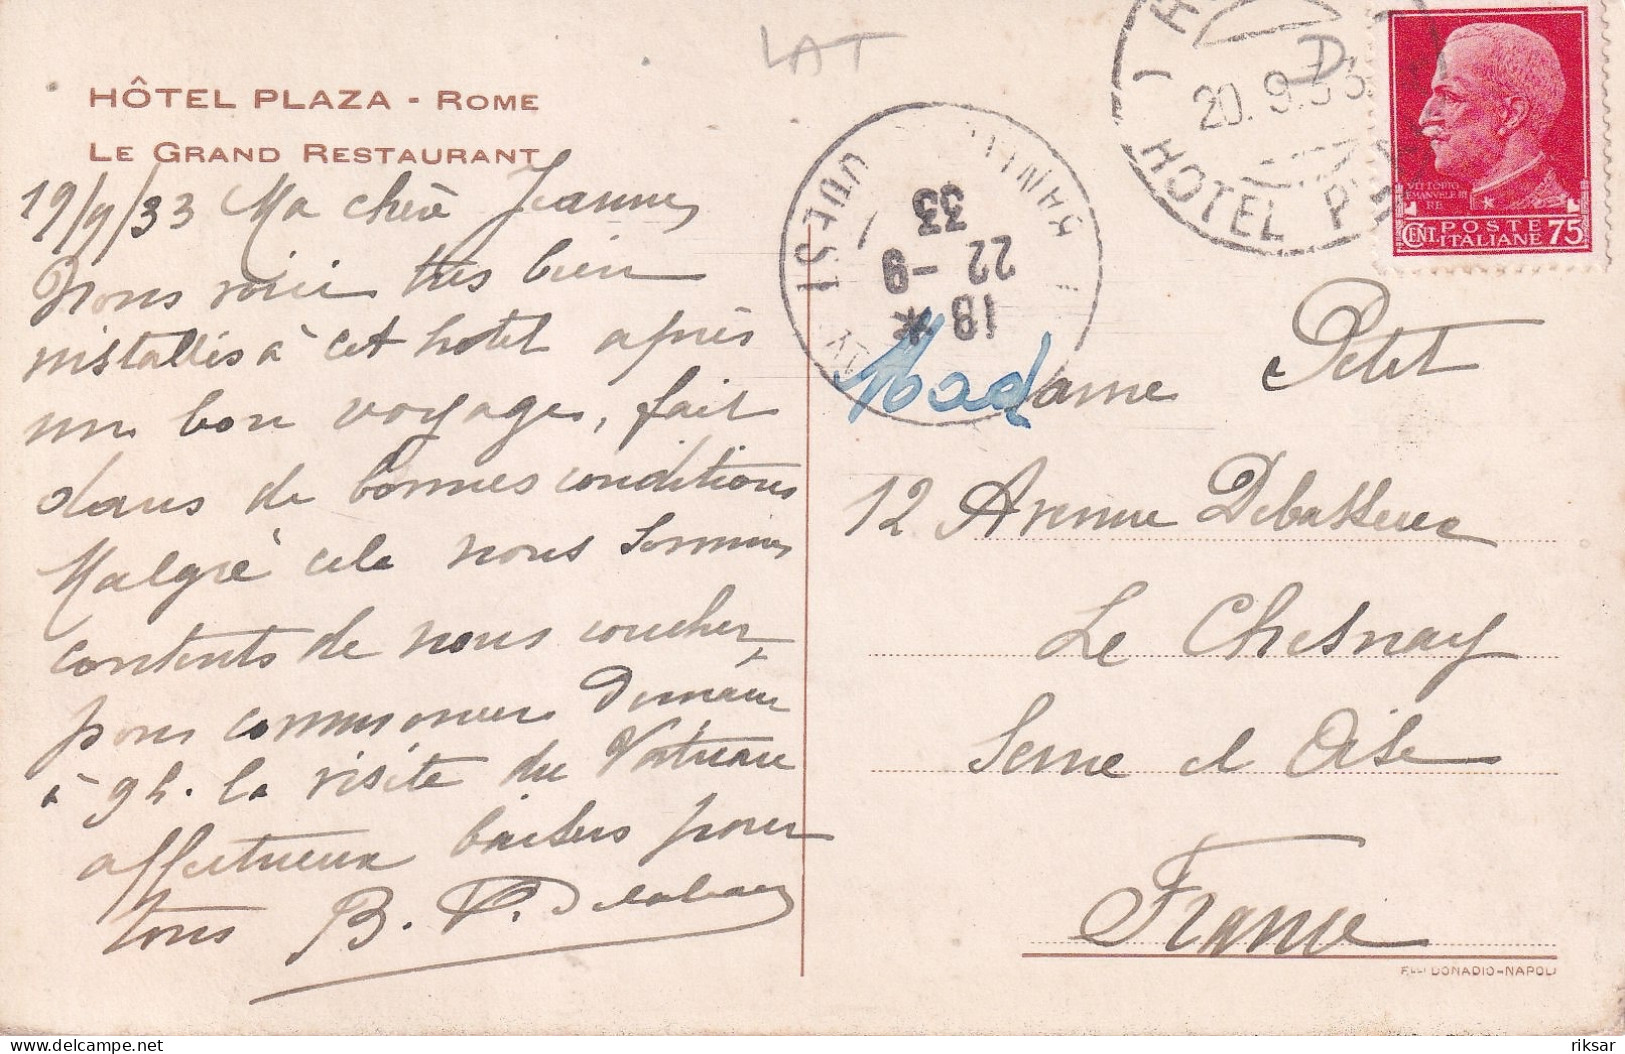 HÔTEL PLAZA - ROME
LE GRAND RESTAURANT
19/9/33 Ma chère Jeanne,
Nous voici très bien
installés à cet hotel après
un bon voyage, fait
dans de bonnes conditions
Malgré cela nous sommes
contents de nous coucher,
pour commencer Demain
à 9h. la visite du Vatican
affectueux baisers pour
tous B.
LAT
20.9.33
HOTEL P
OUEST
18
22 -9
33
VITTORIO
EMANUELE III
RE
CENT. POSTE
ITALIANE 75
Madame Petit
12 Avenue
Le Chesnay
Seine et Oise
France
F.lli DONADIO-NAPOLI
riksar
delcampe.net